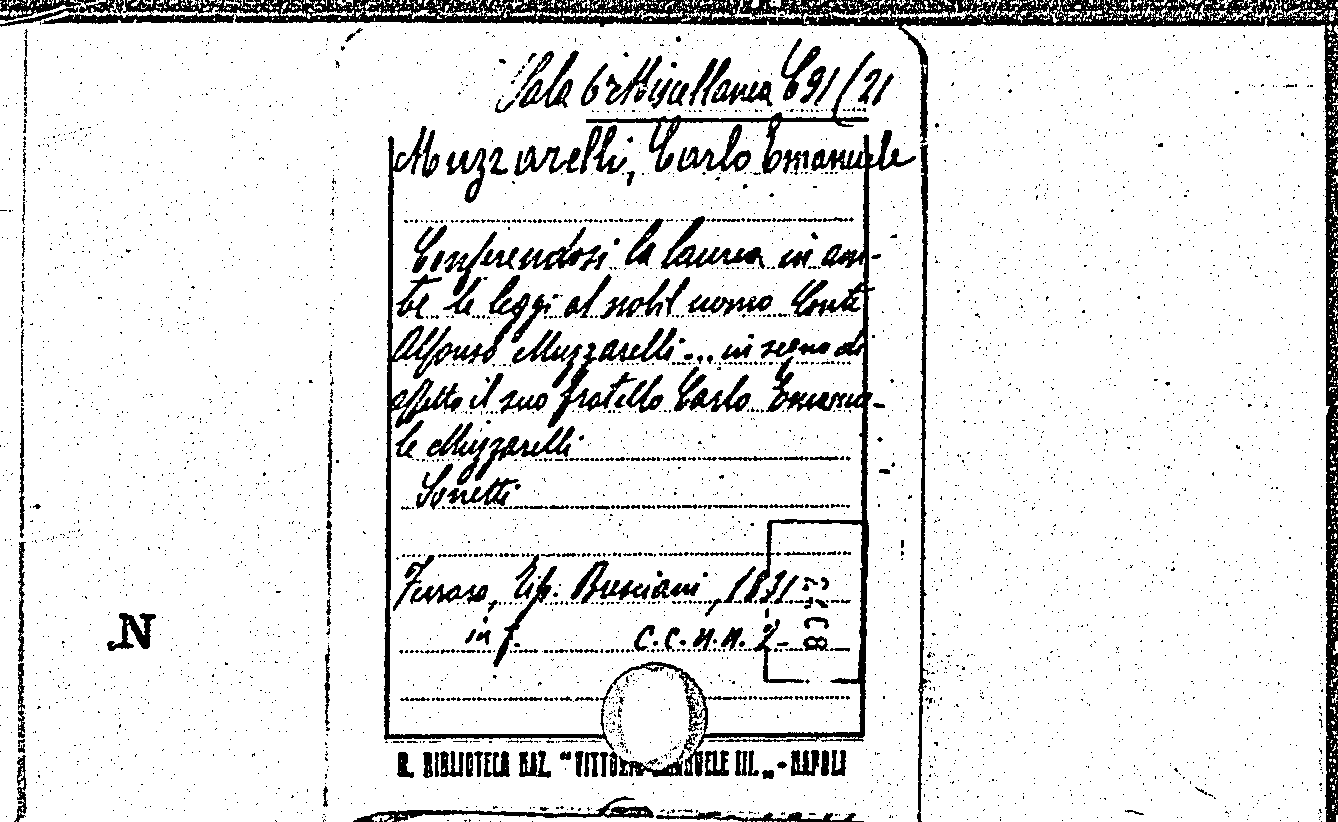 Sala 6ª Miscellanea C 91 (21
Muzzarelli, Carlo Emanuele
Conferendosi la laurea in am-
be le leggi al nobil uomo Conte
Alfonso Muzzarelli... in segno di
affetto il suo fratello Carlo Emanue-
le Muzzarelli
Sonetti
Ferrara, Tip. Bresciani, 1831
in f. C.C.N.N. 2
R. BIBLIOTECA NAZ. "VITTORIO EMANUELE III. „ - NAPOLI
N